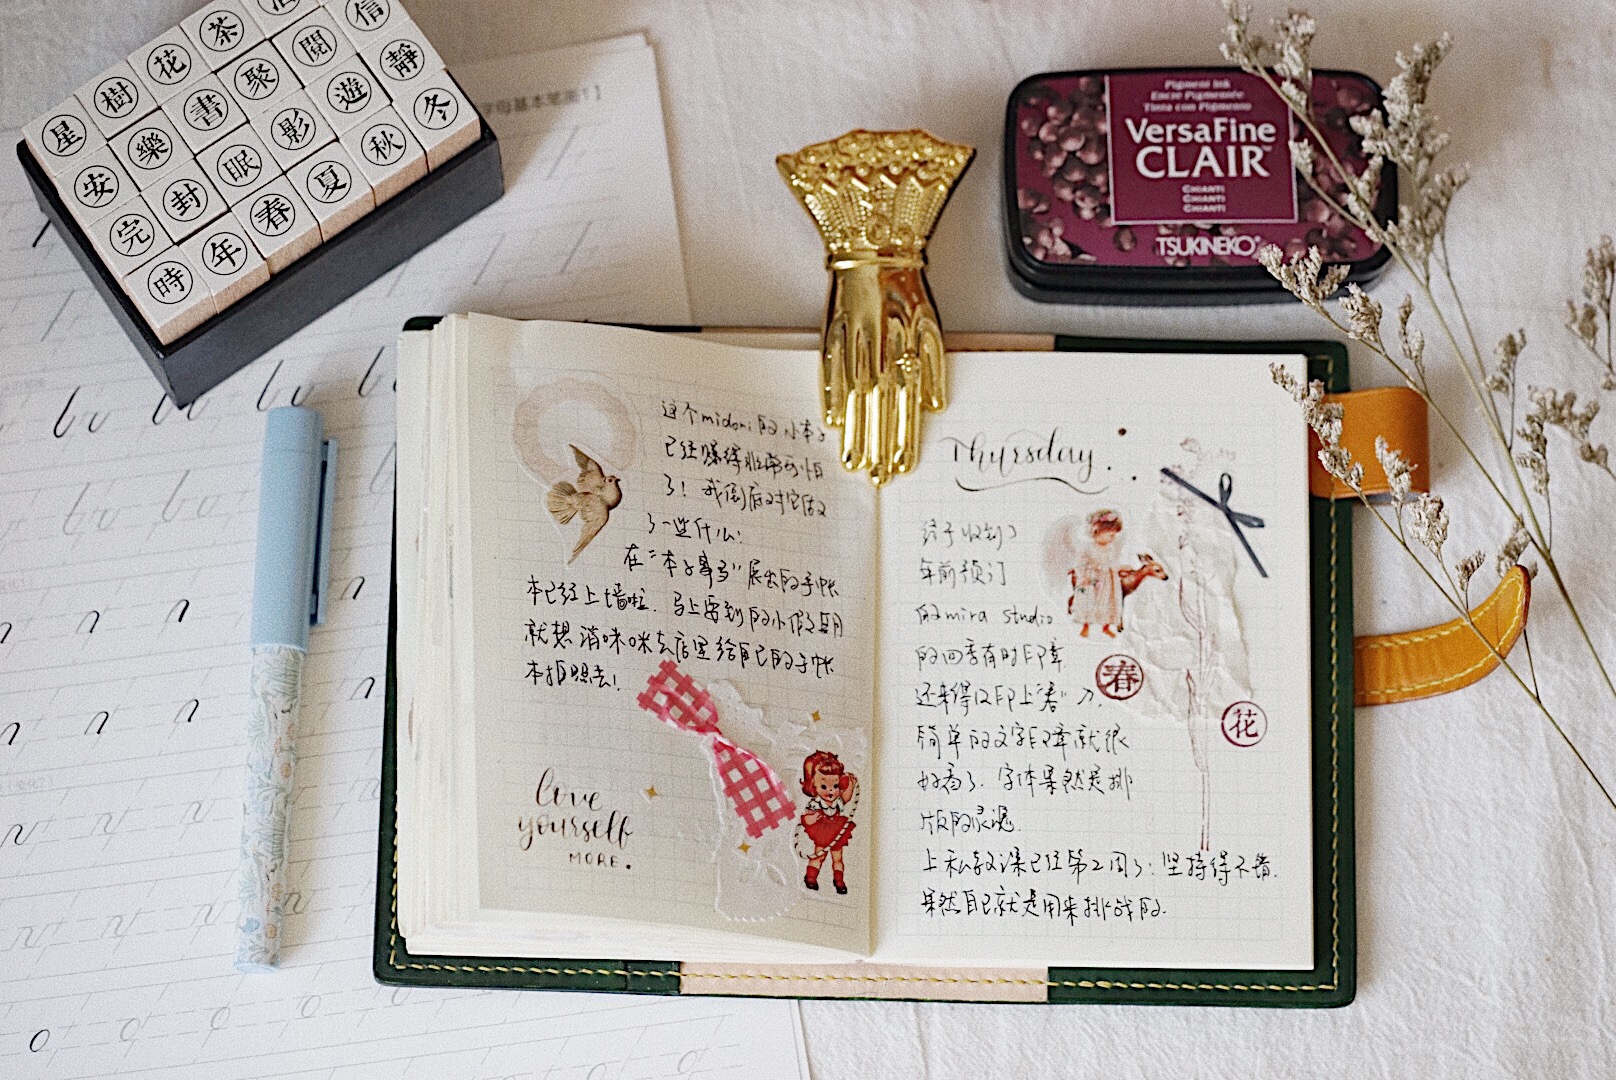 信
茶 閱 靜
花 聚 遊 冬
樹 書 影 秋
星 樂 眠 夏
安 封 春
完 年
時
字母基本笔画1】
Pigment Ink
Encre Pigmentée
Tinta con Pigmento
VersaFine
CLAIR™
CHIANTI
CHIANTI
CHIANTI
TSUKINEKO®
这个midori的小本子
已经赚得非常可怕
了！我倒底对它做
了一些什么！
在“本子事多”展出的手帐
本已经上墙啦．马上要到的小假期
就想消咪咪去店里给自己的手帐
本拍照去！
love
yourself
MORE.
Thursday.
终于收到了
年前预订
的mira studio
的四季有时印章
还来得及印上“春”刀．
简单的文字印章就很
好看了．字体果然是排
版的灵魂．
上私教课已经第2周了：坚持得不错．
果然自己就是用来挑战的．
春
花